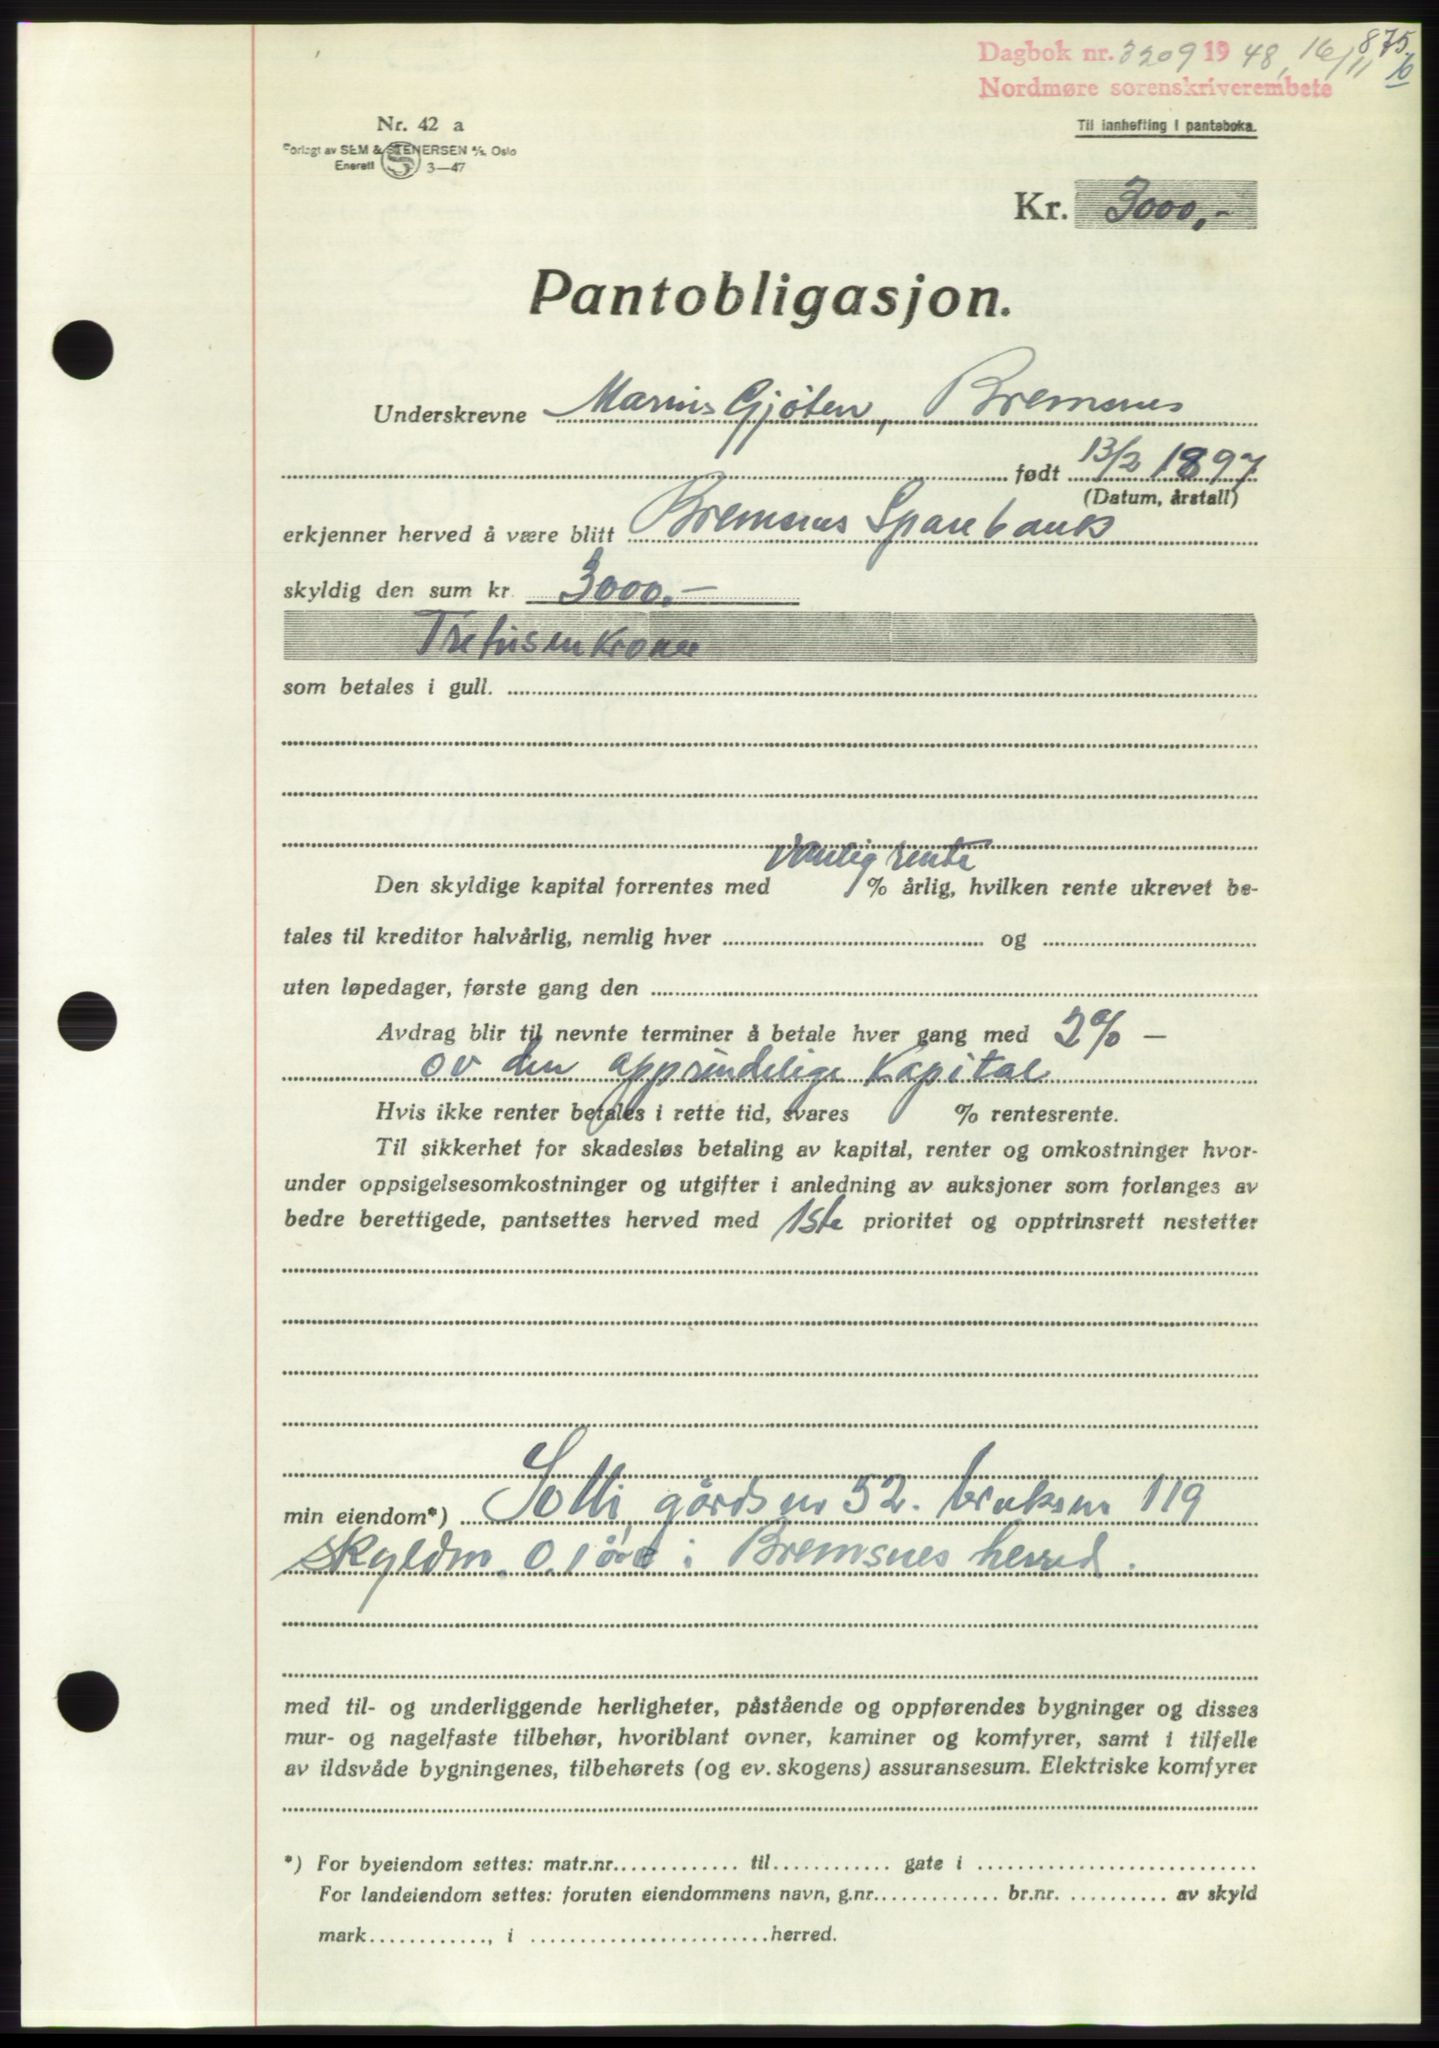 875
Dagbok nr. 3209 19 48, 16/11
Nordmøre sorenskriverembete
Nr. 42 a
Forlagt av SEM & STENERSEN A/S, Oslo
Enerett S 3—47
Til innhefting i panteboka.
Kr. 3000,-
Pantobligasjon.
Underskrevne Marius Gjøten, Bremsnes
født 13/2 1897
(Datum, årstall)
erkjenner herved å være blitt Bremsnes Sparebank
skyldig den sum kr. 3000,-
Tretusenkroner
som betales i gull.
vanlig rente
Den skyldige kapital forrentes med % årlig, hvilken rente ukrevet be-
tales til kreditor halvårlig, nemlig hver og
uten løpedager, første gang den
Avdrag blir til nevnte terminer å betale hver gang med 2% —
av den opprindelige Kapital
Hvis ikke renter betales i rette tid, svares % rentesrente.
Til sikkerhet for skadesløs betaling av kapital, renter og omkostninger hvor-
under oppsigelsesomkostninger og utgifter i anledning av auksjoner som forlanges av
bedre berettigede, pantsettes herved med 1ste prioritet og opptrinsrett nestetter
min eiendom*) Solli, gårdsnr 52. bruksnr 119
skyldm. 0.1 øre i Bremsnes herred.
med til- og underliggende herligheter, påstående og oppførendes bygninger og disses
mur- og nagelfaste tilbehør, hvoriblant ovner, kaminer og komfyrer, samt i tilfelle
av ildsvåde bygningenes, tilbehørets (og ev. skogens) assuransesum. Elektriske komfyrer
*) For byeiendom settes: matr.nr. til gate i
For landeiendom settes: foruten eiendommens navn, g.nr. br.nr. av skyld
mark , i herred.